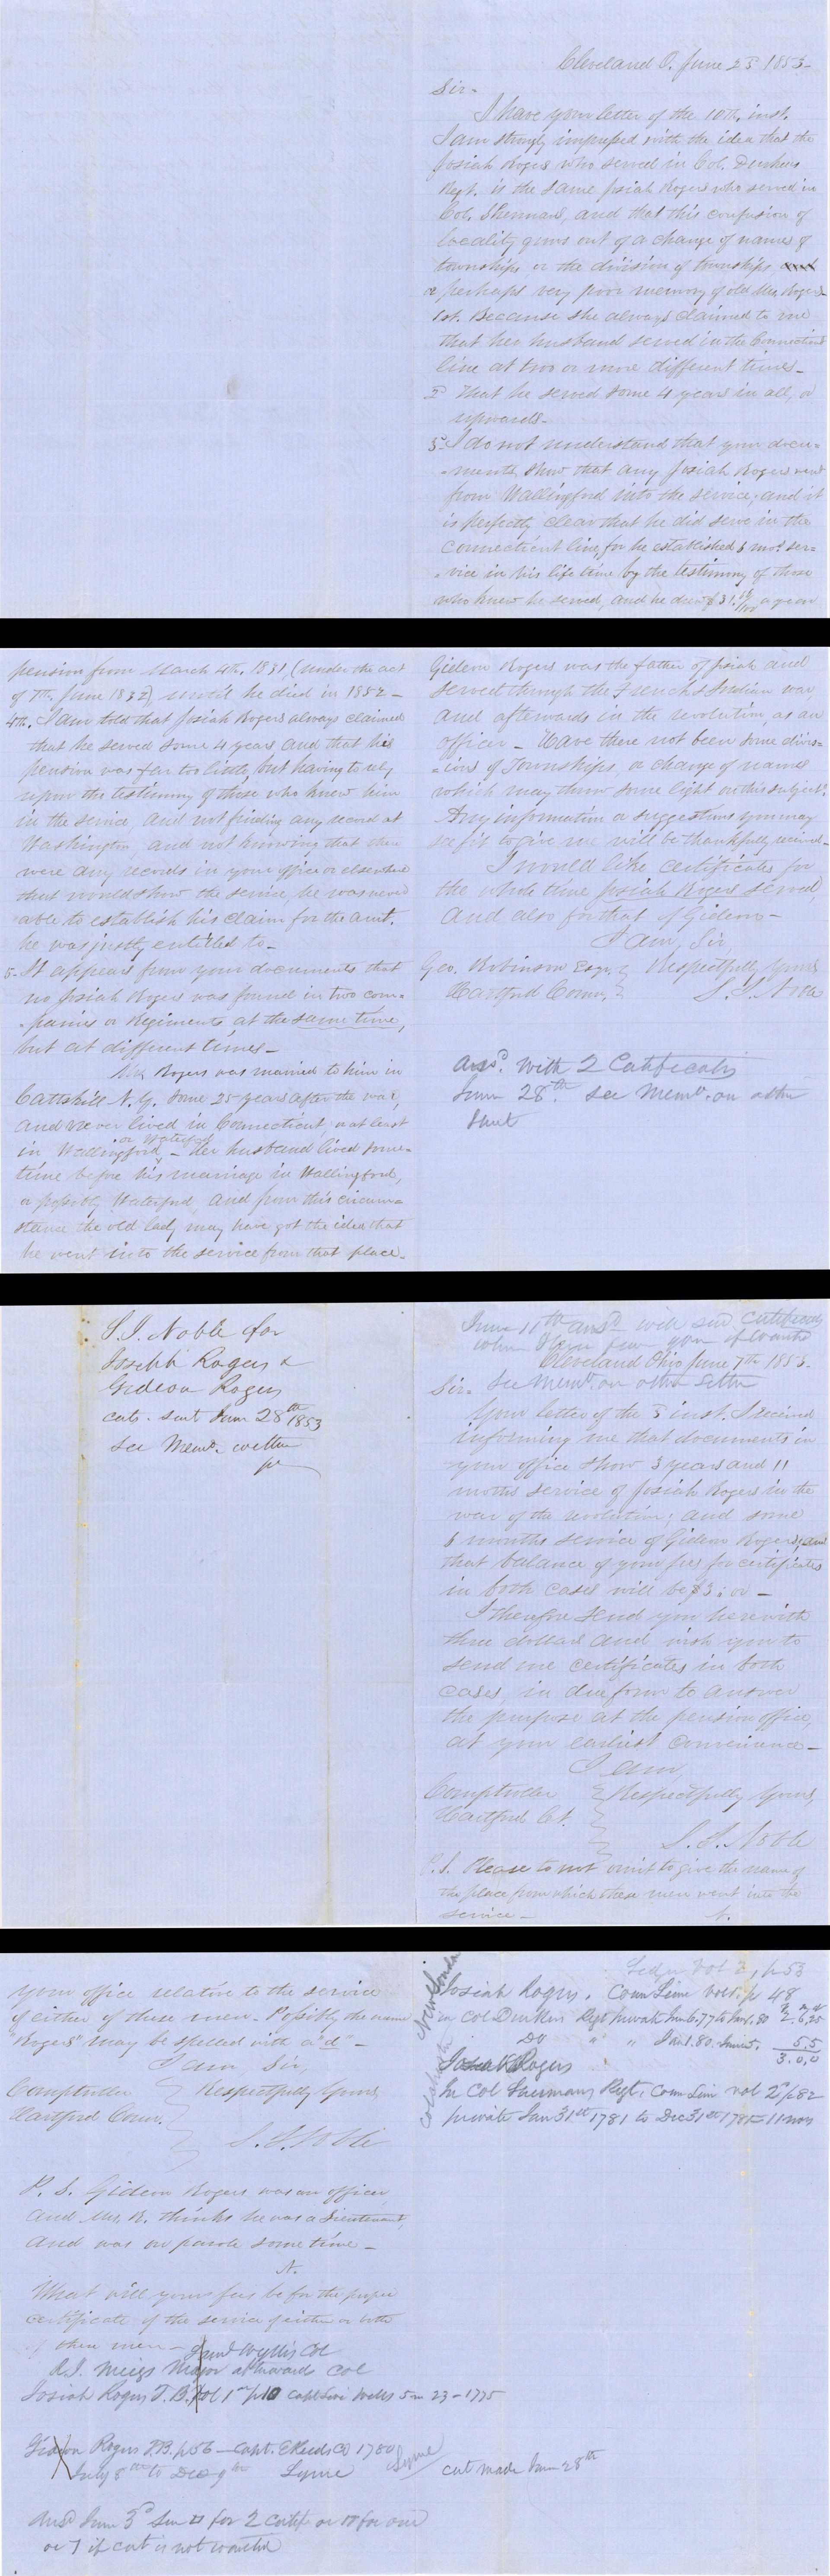 Cleveland O. June 23 1853-
Sir-
I have your letter of the 10th. inst.
I am strongly impressed with the idea that the
Josiah Rogers who served in Col. Durkees
Regt. is the same Josiah Rogers who served in
Col. Shermans, and that this confusion of
locality grows out of a change of names of
townships or the division of townships,
or perhaps very poor memory of old Mrs. Rogers
1st. Because she always claimed to me
that her husband served in the Connecticut
line at two or more different times-
2d That he served some 4 years in all, or
upwards-
3d I do not understand that your docu=
=ments show that any Josiah Rogers went
from Wallingford into the service; and it
is perfectly clear that he did serve in the
Connecticut line, for he established 6 mos. ser=
=vice in his life time by the testimony of those
who knew he served, and he drew $31. a year
pension from March 4th. 1831 (under the act
of 7th. June 1832) until he died in 1852-
4th. I am told that Josiah Rogers always claimed
that he served some 4 years, and that his
pension was far too little, but having to rely
upon the testimony of those who knew him
in the service, and not finding any record at
Washington and not knowing that there
were any records in your office or elsewhere
that would show the service, he was never
able to establish his claim for the amt.
he was justly entitled to-
5- It appears from your documents that
no Josiah Rogers was found in two com=
=panies or Regiments at the same time,
but at different times-
Mrs. Rogers was married to him in
Cattskill N.Y. some 25 years after the war,
and never lived in Connecticut not least
in Wallingford or Waterford- Her husband lived some=
time before his marriage in Wallingford,
or possibly Waterford, and from this circum=
stance the old lady may have got the idea that
he went into the service from that place-
Gideon Rogers was the father of Josiah and
served through the French & Indian war
and afterwards in the revolution, as an
officer- Have there not been some divis=
=ions of Townships, or change of names
which may throw some light on this subject?
Any information or suggestions you may
see fit to give me will be thankfully received-
I would like certificates for
the whole time Josiah Rogers served,
and also for that of Gideon-
I am, Sir,
Geo. Robinson Esqr. Respectfully Yours
Hartford Conn. S. I. Noble
Ansd. with 2 Certificates
June 28th. see Memo. on other
sheet
S. I. Noble for
Joseph Rogers &
Gideon Rogers
certs. sent June 28th 1853
see Memo. within
June 11th ansd will send Certificates
Cleveland Ohio June 7th 1853-
Sir- See Memo. on other letter
Your letter of the 3 inst. I received
informing me that documents in
your office show 3 years and 11
months service of Josiah Rogers in the
war of the revolution; and some
6 months service of Gideon Rogers, and
that balance of your fees for certificates
in both cases will be $3:00-
I therefore send you herewith
three dollars and wish you to
send me certificates in both
cases, in due form to answer
the purpose at the pension office,
at your earliest convenience-
I am
Comptroller Respectfully Yours,
Hartford Ct.
S. I. Noble
P.S. Please to not omit to give the name of
the place from which these men went into the
service- N.
your office relative to the service
of either of these men- Possibly the name
"Rogers" may be spelled with a "d"-
I am Sir,
Comptroller Respectfully Yours,
Hartford Conn.
S. I. Noble
P.S. Gideon Rogers was an officer
and Mrs. R. thinks he was a Lieutenant,
and was on parole some time-
N.
What will your fees be for the proper
certificate of the service of either or both
of these men-
Saml Wyllis Col
R.J. Meigs Major afterward Col
Josiah Rogers T.B. Vol 1 p10 Capt Levi Wells 5m 23-1775
Gideon Rogers T.B. p56- Capt. E Reeds Co 1780
July 8th to Dec 9th Lyme
Lyme
Ansd June 3d for 2 Certifs or for one
or 1 if cert is not wanted
Vol 2, p 53
Josiah Rogers. Conn Line vol 1. p 48
New London
in Col Durkees Regt private Jan 6. 77 to Jan 1. 80
Do " " Jan 1. 80. 5.5
3.0.0
Josiah Rogers
In Col Shermans Regt, Conn Line vol 2d p 82
private Jan 31st 1781 to Dec 31st 1781= 11 mos
Colchester
cert made June 28th